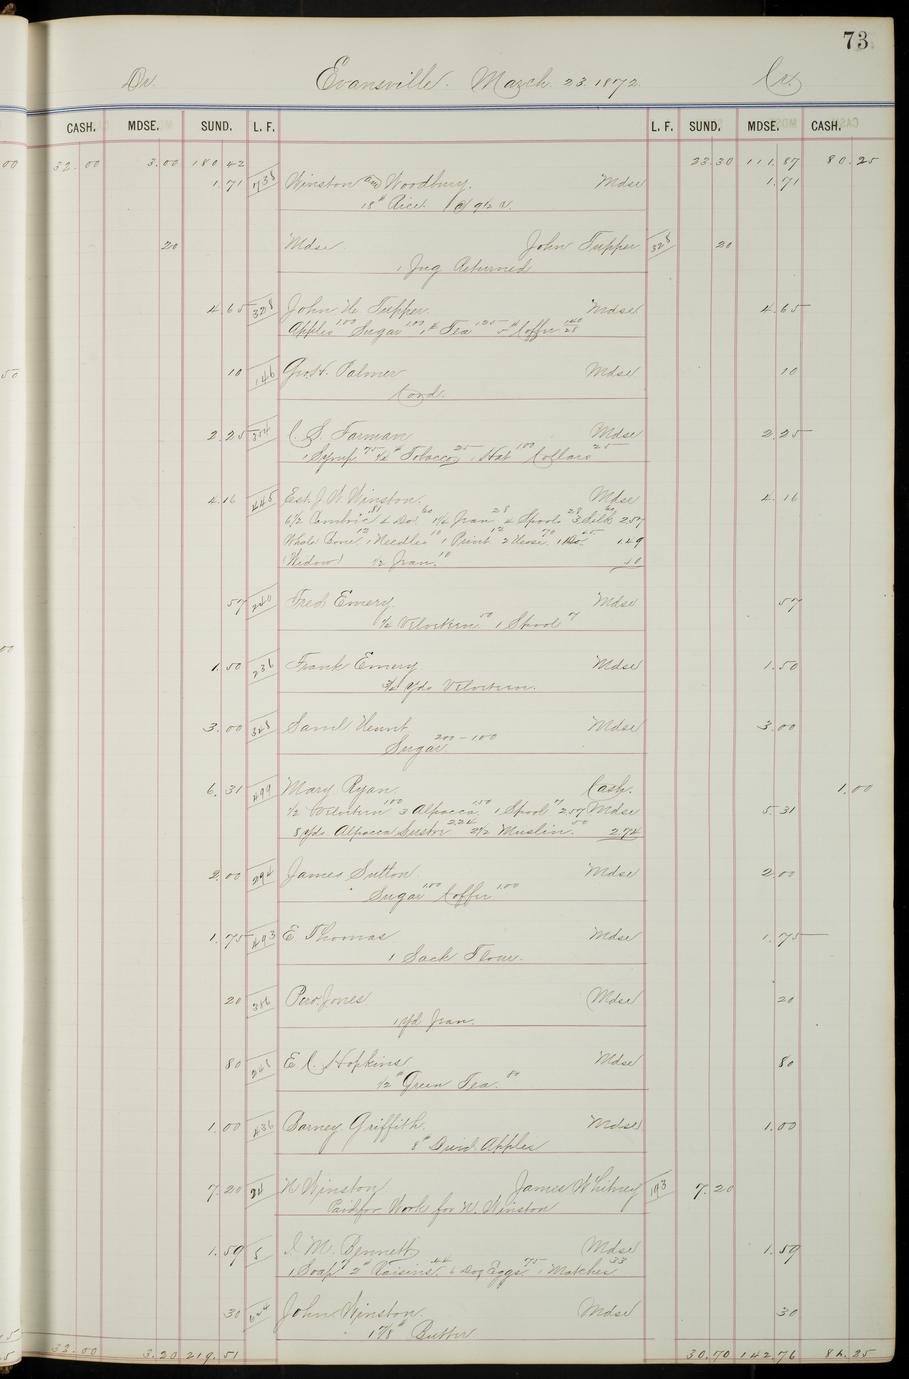 73
Dr. Evansville. March. 23. 1872. Cr.
CASH. MDSE. SUND. L. F. L. F. SUND. MDSE. CASH.
32.00 3.00 180.42 23.30 111.87 80.25
1.71 738 Winston and Woodbury. Mdse 1.71
18# Rice. @ 9½
20 Mdse. John Tupper 328 20
1 Jug Returned
4.65 328 John H. Tupper. Mdse 4.65
Apples 1.00 Sugar 1.00 1# Tea 1.25 5# Coffee 1.40
10 146 Geo. H. Palmer Mdse 10
Cord.
2.25 354 C. S. Farman Mdse 2.25
1 Syrup 75 ½# Tobacco 25 1 Hat 1.00 Collars 25
4.16 445 Est. J. W. Winston. Mdse 4.16
6½ Cambric .81 4 Do. 60 1½ Jean 28 4 Spools 28 3 Silk 60 2.57
Whale Bone 12 1 Needles 10 1 Print 12 2 Hose 70 1 Do. 45 1.49
(Widow) ½ Jean. 10 10
57 240 Fred Emery. Mdse 57
½ Velveteen 50 1 Spool 7
1.50 236 Frank Emery Mdse 1.50
¾ yds Velveteen.
3.00 348 Saml Hunt Mdse 3.00
Sugar 2.00 - 1.00
6.31 499 Mary Ryan. Cash. 1.00
½ Velveteen 1.00 3 Alpacca 1.50 1 Spool 7 2.57 Mdse 5.31
8 yds Alpacca Lustre 2.24 2½ Muslin. 50 2.74
2.00 294 James Sutton Mdse 2.00
Sugar 1.00 Coffee 1.00
1.75 493 E Thomas Mdse 1.75
1 Sack Flour.
20 316 Jones Mdse 20
1 yd Jean.
80 248 E. C. Hopkins Mdse 80
½# Green Tea. 80
1.00 436 Barney Griffith. Mdse 1.00
8# Dried Apples
7.20 24 N Winston James Whitney 193 7.20
Paid for Work for N. Winston
1.59 5 I. M. Bennett Mdse 1.59
1 Soap 7 2# Raisins 44 6 Doz Eggs 75 1 Matches 33
30 John Winston. Mdse 30
1⅞# Butter
32.00 3.20 219.51 30.70 142.76 81.25